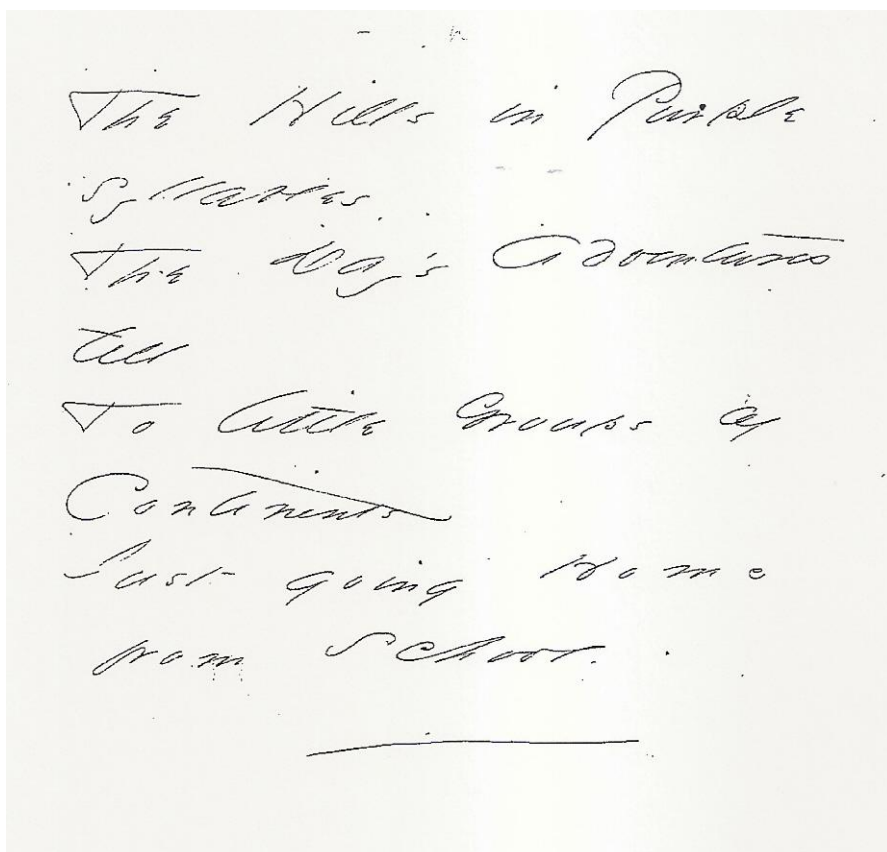 The Hills in Purple
syllables
The Day's Adventures
tell
To little Groups of
Continents
Just going Home
from School.